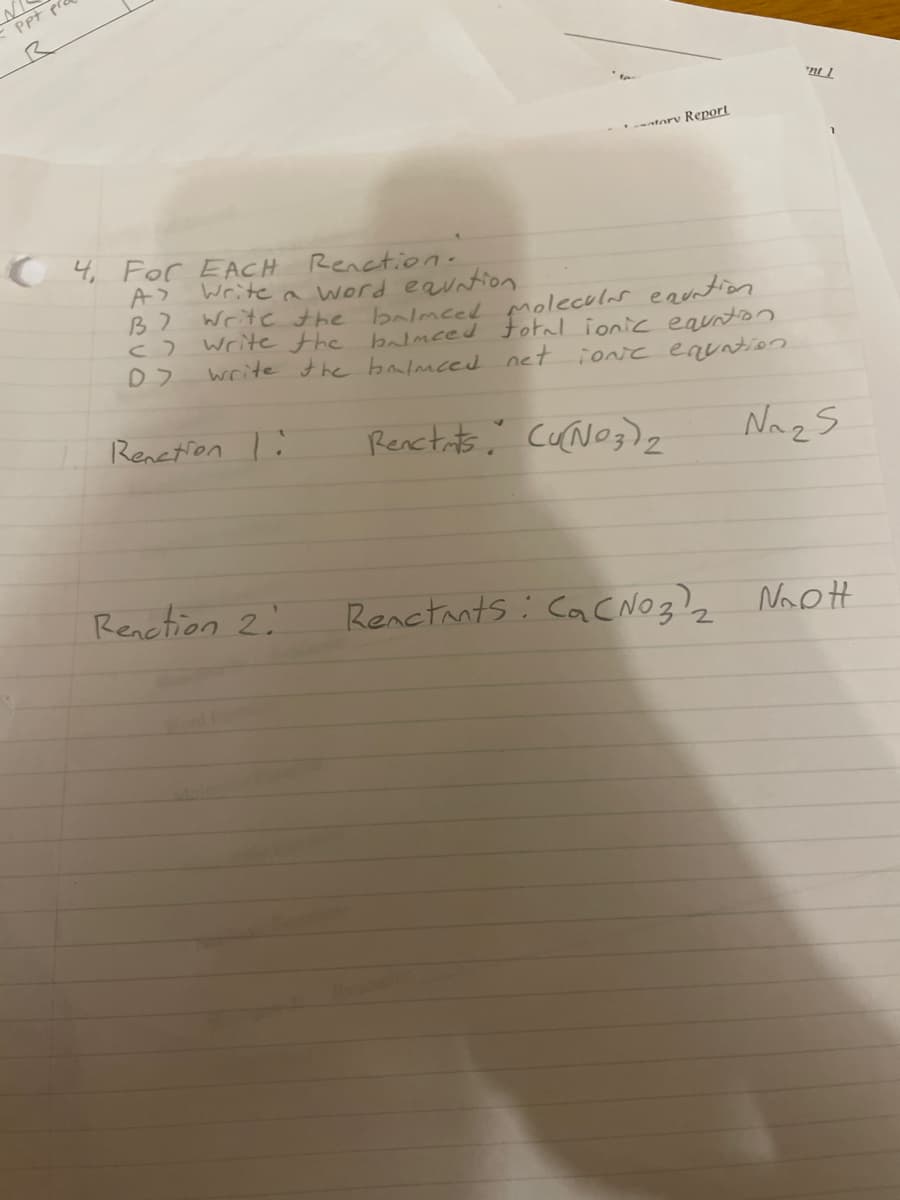 ppt
R
nt 1
atory Report
4. For EACH Reaction.
A) Write a word equation
B) Write the balanced molecular equation
C) write the balanced total ionic equation
D) write the balanced net ionic equation
Reaction 1: Reactants: Cu(NO3)2 Na2S
Reaction 2: Reactants: Ca(NO3)2 NaOH